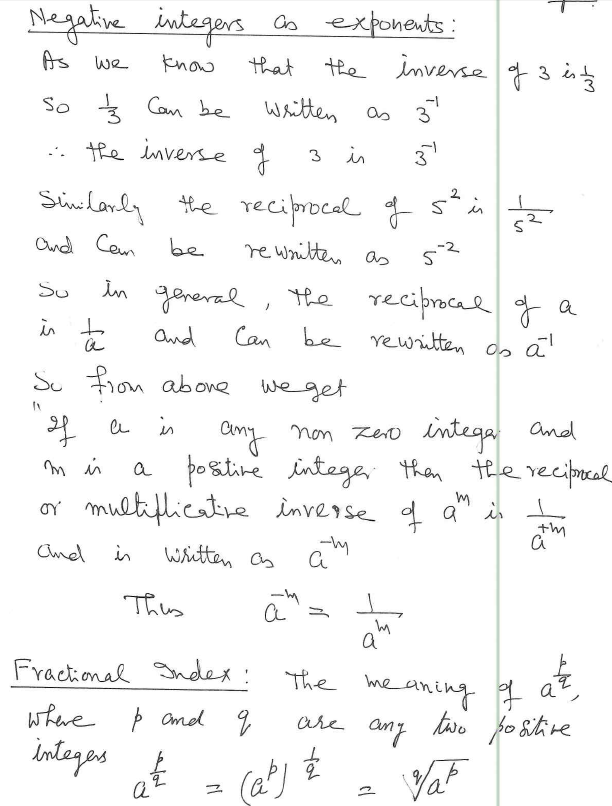 Negative integers as exponents:
As we know that the inverse of 3 is 1/3
So 1/3 Can be written as 3⁻¹
∴ the inverse of 3 is 3⁻¹
Similarly the reciprocal of 5² is 1/5²
and Can be rewritten as 5⁻²
So in general, the reciprocal of a
is 1/a and Can be rewritten as a⁻¹
So from above we get
"If a is any non zero integer and
m is a positive integer then the reciprocal
or multiplicative inverse of aᵐ is 1/a⁺ᵐ
and is written as a⁻ᵐ
Thus a⁻ᵐ = 1/aᵐ
Fractional Index: The meaning of a^(p/q),
where p and q are any two positive
integers a^(p/q) = (aᵖ)^(1/q) = ᑫ√aᵖ